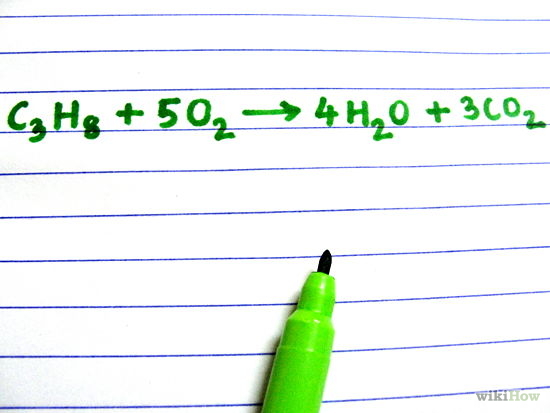 C₃H₈ + 5O₂ → 4H₂O + 3CO₂
wikiHow